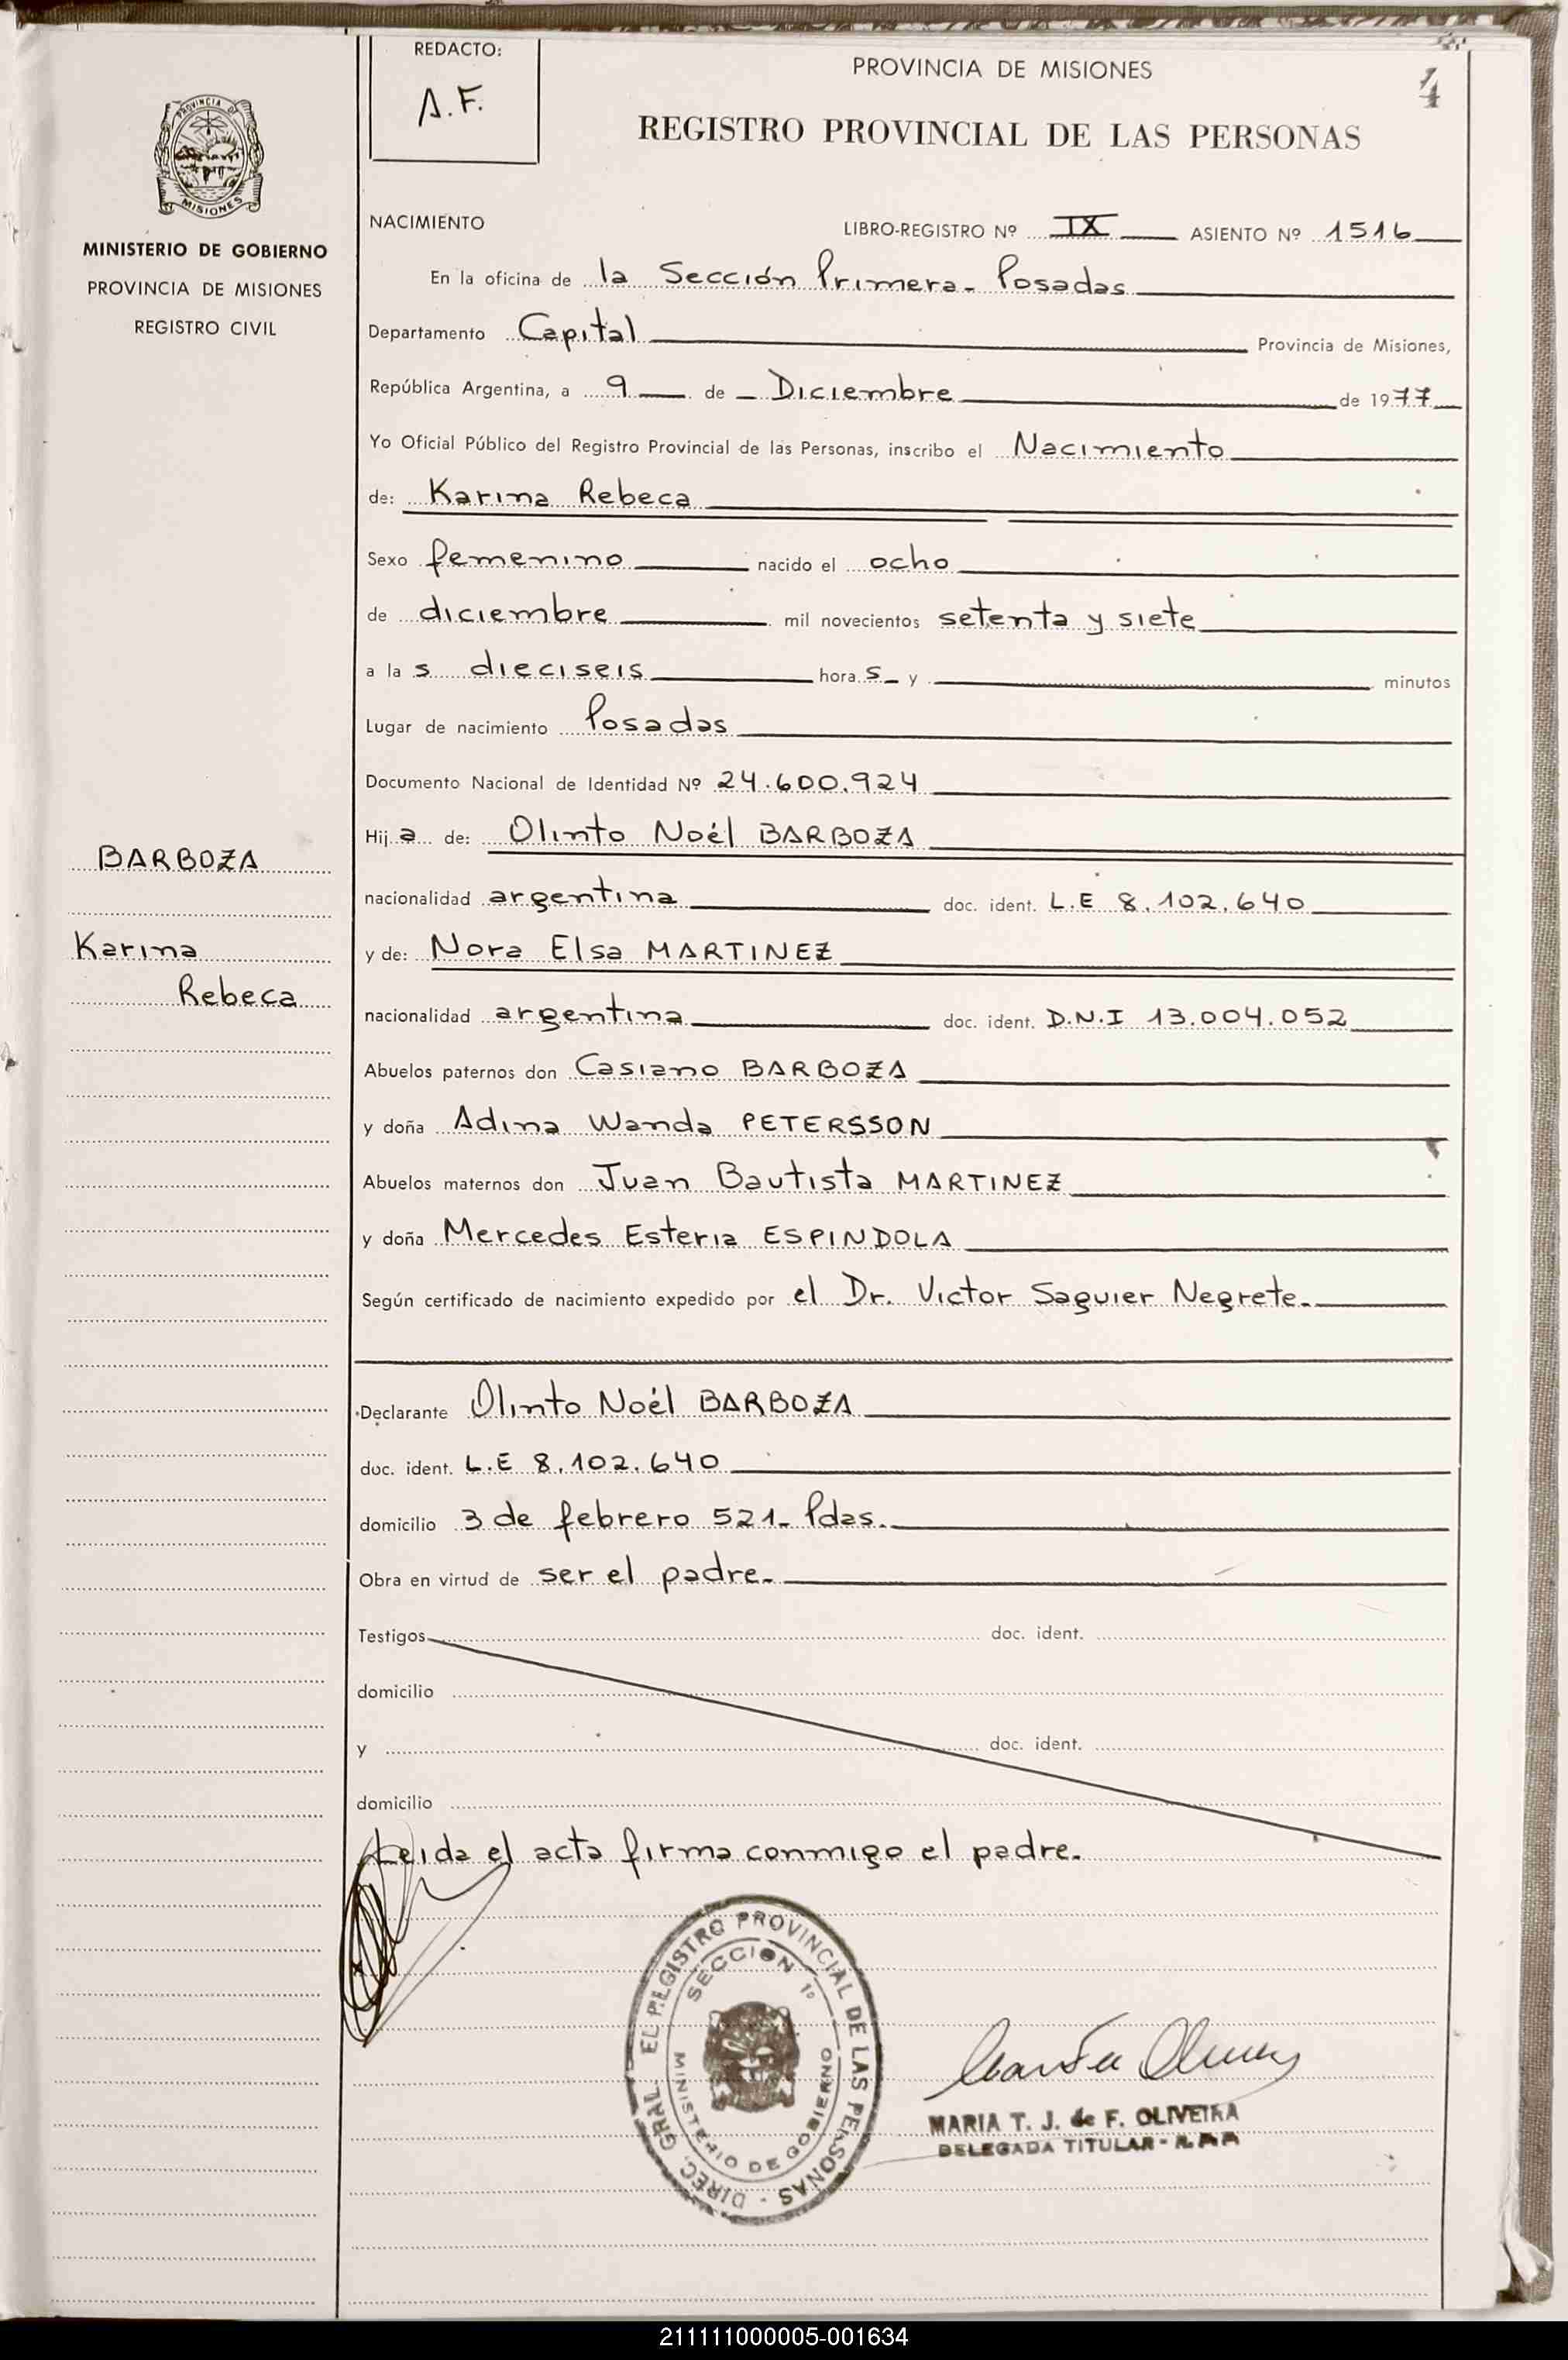 REDACTO:
A.F.
PROVINCIA DE MISIONES
REGISTRO PROVINCIAL DE LAS PERSONAS
PROVINCIA DE
MISIONES
MINISTERIO DE GOBIERNO
PROVINCIA DE MISIONES
REGISTRO CIVIL
NACIMIENTO LIBRO-REGISTRO Nº IX ASIENTO Nº 1516
En la oficina de la Sección Primera - Posadas
Departamento Capital Provincia de Misiones,
República Argentina, a 9 de Diciembre de 1977
Yo Oficial Público del Registro Provincial de las Personas, inscribo el Nacimiento
de: Karina Rebeca
Sexo femenino nacido el ocho
de diciembre mil novecientos setenta y siete
a la s dieciseis hora s y minutos
Lugar de nacimiento Posadas
Documento Nacional de Identidad Nº 24.600.924
Hij a de: Olinto Noél BARBOZA
BARBOZA
nacionalidad argentina doc. ident. L.E 8.102.640
Karina
y de: Nora Elsa MARTINEZ
Rebeca
nacionalidad argentina doc. ident. D.N.I 13.004.052
Abuelos paternos don Casiano BARBOZA
y doña Adina Wanda PETERSSON
Abuelos maternos don Juan Bautista MARTINEZ
y doña Mercedes Esteria ESPINDOLA
Según certificado de nacimiento expedido por el Dr. Victor Saguier Negrete.
Declarante Olinto Noél BARBOZA
doc. ident. L.E 8.102.640
domicilio 3 de febrero 521- Pdas.
Obra en virtud de ser el padre.
Testigos doc. ident.
domicilio
y doc. ident.
domicilio
Leida el acta firma conmigo el padre.
DIREC. GRAL. EL REGISTRO PROVINCIAL DE LAS PERSONAS
SECCION 1º
MINISTERIO DE GOBIERNO
MARIA T. J. de F. OLIVEIRA
DELEGADA TITULAR -
211111000005-001634